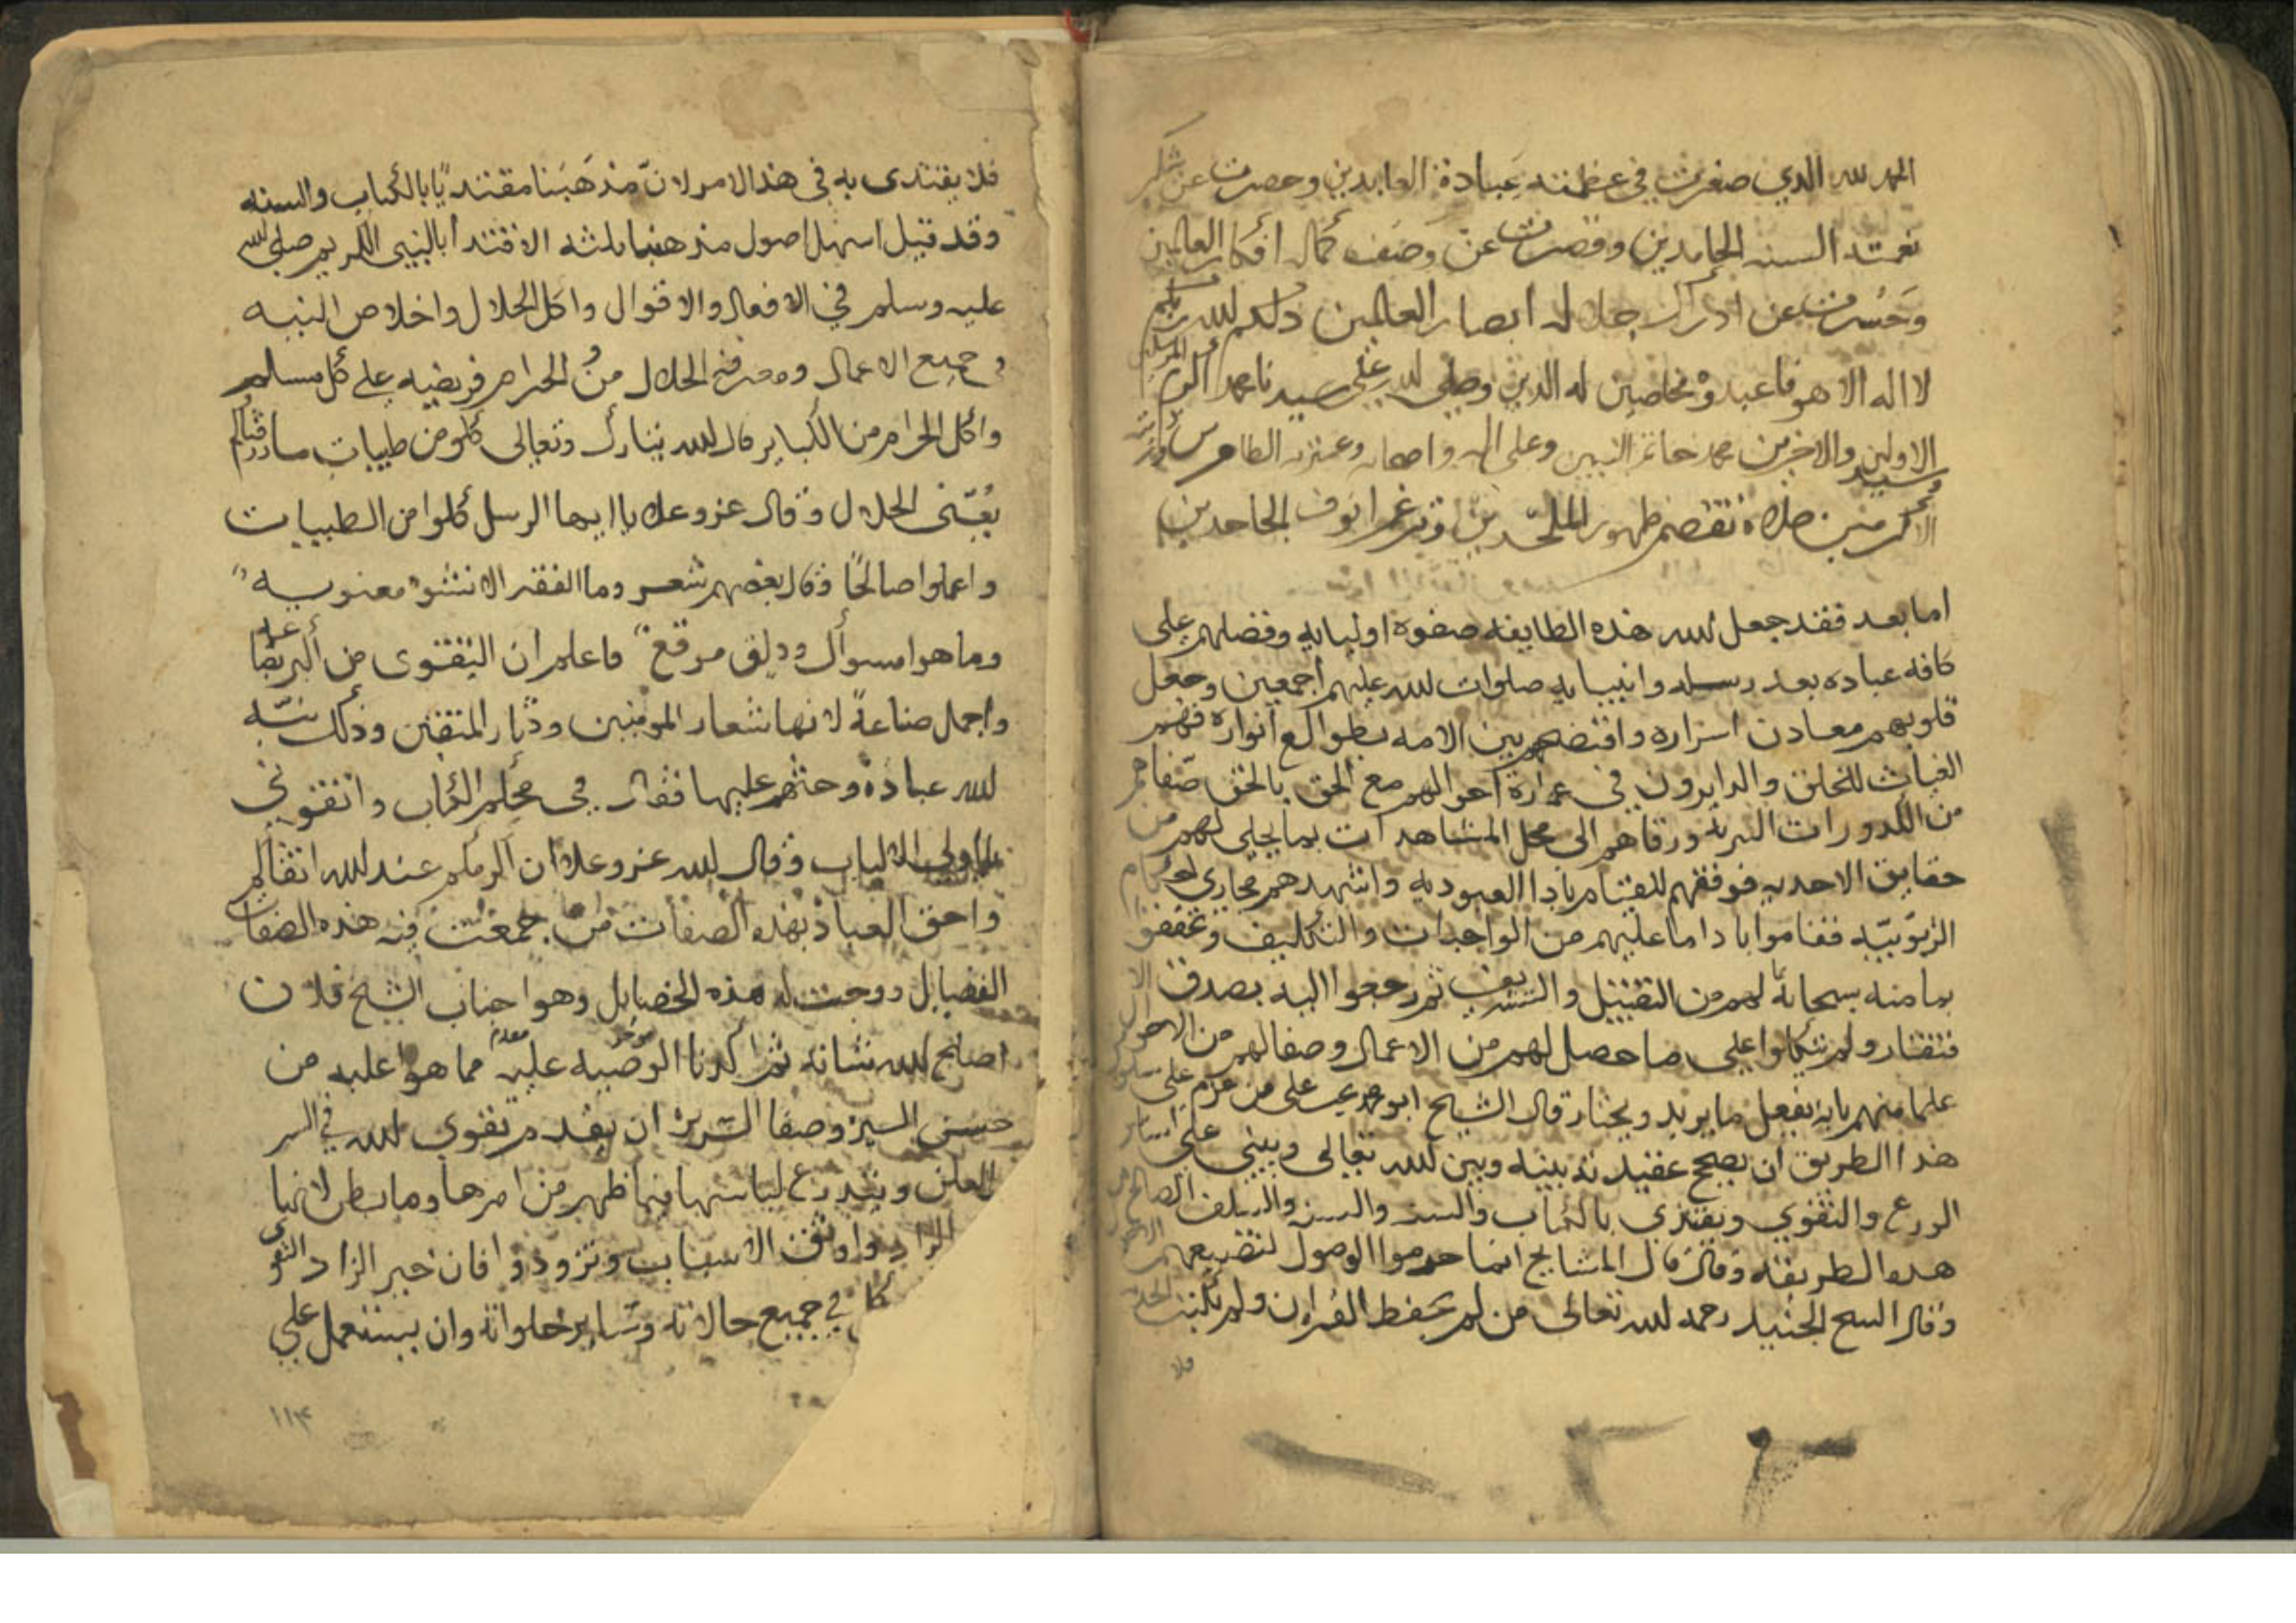 الحمد لله الذي صغرت في عظمته عبادة العابدين وحصرت عن شكر
نعمته السنه الحامدين وقصرت عن وصف كماله افكار العالمين
وحسرت عن ادراك جلاله ابصار العالمين ذلكم الله ربكم
لا اله الا هو فاعبدوه مخلصين له الدين وصلى الله على سيدنا محمد اكرم المرسلين
وسيد الاولين والاخرين محمد خاتم النبيين وعلى اله واصحابه وعترته الطاهرين
الاكرمين صلاة تقصم ظهور الملحدين وترغم انوف الجاحدين
اما بعد فقد جعل الله هذه الطايفه صفوة اوليايه وفضلهم على
كافه عباده بعد رسله وانبيايه صلوات الله عليهم اجمعين وجعل
قلوبهم معادن اسراره واختصهم بين الامه بطوالع انواره فهم
الغياث للخلق والدايرون في عموم احوالهم مع الحق بالحق صفاهم
من الكدورات البشريه ورقاهم الى محل المشاهدات بما تجلى لهم من
حقايق الاحديه فوفقهم للقيام بادا العبوديه واشهدهم مجاري احكام
الربوبيه فقاموا بادا ما عليهم من الواجبات والتكليف وتحققوا
بما منه سبحانه لهم من التقبيل والتشريف ثم رجعوا اليه بصدق الا
فتقار ولم يتكلوا على ما حصل لهم من الاعمال وصفا لهم من الاحوال
علما منهم بانه يفعل ما يريد ويختار قال الشيخ ابو محمد يجب على من عزم على سلوك
هذا الطريق ان يصحح عقيدته بينه وبين الله تعالى ويبني على اساس
الورع والتقوي ويقتدي بالكتاب والسنه والسلف الصالح من
هذه الطريقه وقال قال المشايخ انما حرموا الوصول لتضييعهم الاصول
وقال الشيخ الجنيد رحمه الله تعالى من لم يحفظ القران ولم يكتب الحديث
فلا
فلا يقتدى به في هذا الامر لان مذهبنا مقتديا بالكتاب والسنه
وقد قيل اسهل اصول مذهبنا ثلثه الاقتدا بالنبي الكريم صلى الله
عليه وسلم في الافعال والاقوال واكل الحلال واخلاص النيه
في جميع الاعمال ومعرفة الحلال من الحرام فريضيه على كل مسلم
واكل الحرام من الكباير قال الله تبارك وتعالى كلو من طيبات ما رزقناكم
يعنى الحلال وقال عز وعلا يا ايها الرسل كلوا من الطيبات
واعملوا صالحا وقال بعضهم شعر وما الفقر الا نشوه معنويه
وما هوا مسوأك ودلق مرقع فاعلم ان التقوى من اكبر بضاعه
واجمل صناعة لانها شعار المومنين ودثار المتقين وذلك نبه
الله عباده وحثهم عليها فقال في محكم الكتاب واتقوني
يا اولى الالباب وقال الله عز وعلا ان اكرمكم عند الله اتقاكم
واحق العباد بهذه الصفات من جمعت فيه هذه الصفات
الفضايل ووجبت له هذه الخصايل وهوا جناب الشيخ فلان
اصلح الله شانه ثم اكدنا الوصيه عليه مما هوا عليه من
مؤخر مقدم
حسن السيره وصفا السريره ان يقدم تقوى الله في السر
والعلن ويتدرع لباسها فيما ظهر من امرها وما بطن لانها
الزاد واوثق الاسباب وتزودوا فان خير الزاد التقوى
في جميع حالاته وساير خلواته وان يستعمل على
١١٣